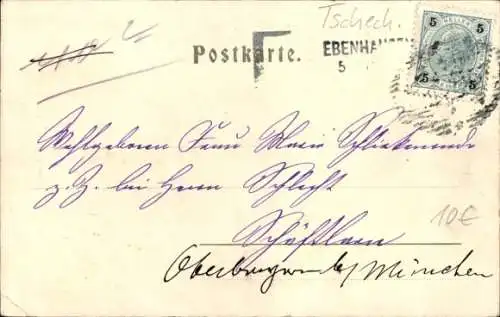 Tschech.
Postkarte.
EBENHAUSEN
5
5 HELLER 5
5 5
Wohlgeboren Frau Marie
z. Z. bei Herrn Schlecht
Schäftlarn
Oberbayern b/ München
10€